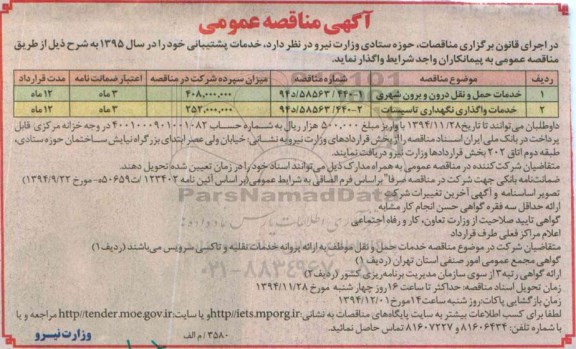 آگهی مناقصه عمومی
در اجرای قانون برگزاری مناقصات، حوزه ستادی وزارت نیرو در نظر دارد، خدمات پشتیبانی خود را در سال ۱۳۹۵ به شرح ذیل از طریق
مناقصه عمومی به پیمانکاران واجد شرایط واگذار نماید.
ردیف موضوع مناقصه شماره مناقصه میزان سپرده شرکت در مناقصه اعتبار ضمانت نامه مدت قرارداد
۱ خدمات حمل و نقل درون و برون شهری ۹۴د/۵۸۵۶۳/۴۴۰-۱ ۴۰۸,۰۰۰,۰۰۰ ۳ ماه ۱۲ ماه
۲ خدمات واگذاری نگهداری تاسیسات ۹۴د/۵۸۵۶۳/۴۴۰-۲ ۲۵۲,۰۰۰,۰۰۰ ۳ ماه ۱۲ ماه
داوطلبان می توانند تا تاریخ ۱۳۹۴/۱۱/۲۸ با واریز مبلغ ۵۰۰,۰۰۰ هزار ریال به شماره حساب ۴۰۰۱۰۰۰۹۰۱۰۰۱۰۸۲ در وجه خزانه مرکزی قابل
پرداخت در بانک ملی ایران اسناد مناقصه را از بخش قراردادهای وزارت نیرو به نشانی: خیابان ولی عصر ابتدای بزرگراه نیایش ساختمان حوزه ستادی،
طبقه دوم اتاق ۲۰۲ بخش قراردادها وزارت نیرو دریافت نمایند.
متقاضیان شرکت کننده در مناقصه عمومی به همراه مدارک ذیل می توانند اسناد خود را در زمان تعیین شده تحویل دهند.
ضمانتنامه بانکی جهت شرکت در مناقصه صرفا" براساس فرم الصاقی به شرایط عمومی (بر اساس آئین نامه ۱۲۳۴۰۲/ت۵۰۶۵۹ه- مورخ ۱۳۹۴/۹/۲۲)
تصویر اساسنامه و آگهی آخرین تغییرات شرکت
ارائه حداقل سه فقره گواهی حسن انجام کار مشابه
گواهی تایید صلاحیت از وزارت تعاون، کار و رفاه اجتماعی
اعلام مراکز فعلی طرف قرارداد
متقاضیان شرکت در موضوع مناقصه خدمات حمل و نقل موظف به ارائه پروانه خدمات نقلیه و تاکسی سرویس می باشند (ردیف ۱)
گواهی مجمع عمومی امور صنفی استان تهران (ردیف ۱)
ارائه گواهی رتبه ۳ از سوی سازمان مدیریت برنامه ریزی کشور (ردیف ۲)
زمان تحویل اسناد مناقصه: حداکثر تا ساعت ۱۶ روز چهار شنبه مورخ ۱۳۹۴/۱۱/۲۸
زمان بازگشایی پاکات: روز شنبه ساعت ۱۴ مورخ ۱۳۹۴/۱۲/۰۱
لطفا برای کسب اطلاعات بیشتر به سایت پایگاه های مناقصات به نشانی: http//iets.mporg.ir و یا سایت: http//tender.moe.gov.ir مراجعه و یا
با شماره تلفن: ۸۱۶۰۶۴۳۴ و ۸۱۶۰۷۲۲۷ تماس حاصل نمائید.
۳۵۸۰/ م الف
وزارت نیرو
ParsNamadData
۰۲۱-۸۸۳۴۹۶۷